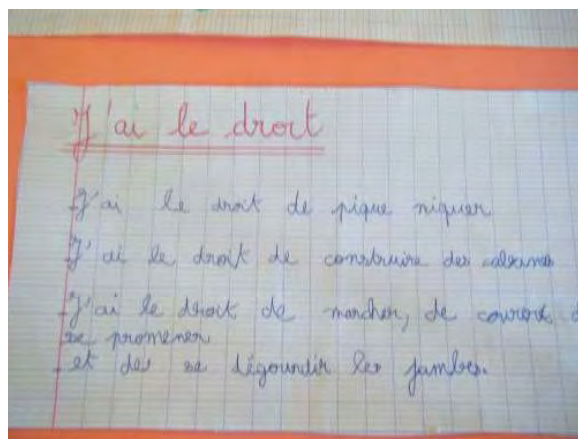 J'ai le droit
J'ai le droit de pique niquer
J'ai le droit de construire des cabanes
J'ai le droit de marcher, de courir
se promener
et des se dégourdir les jambes.